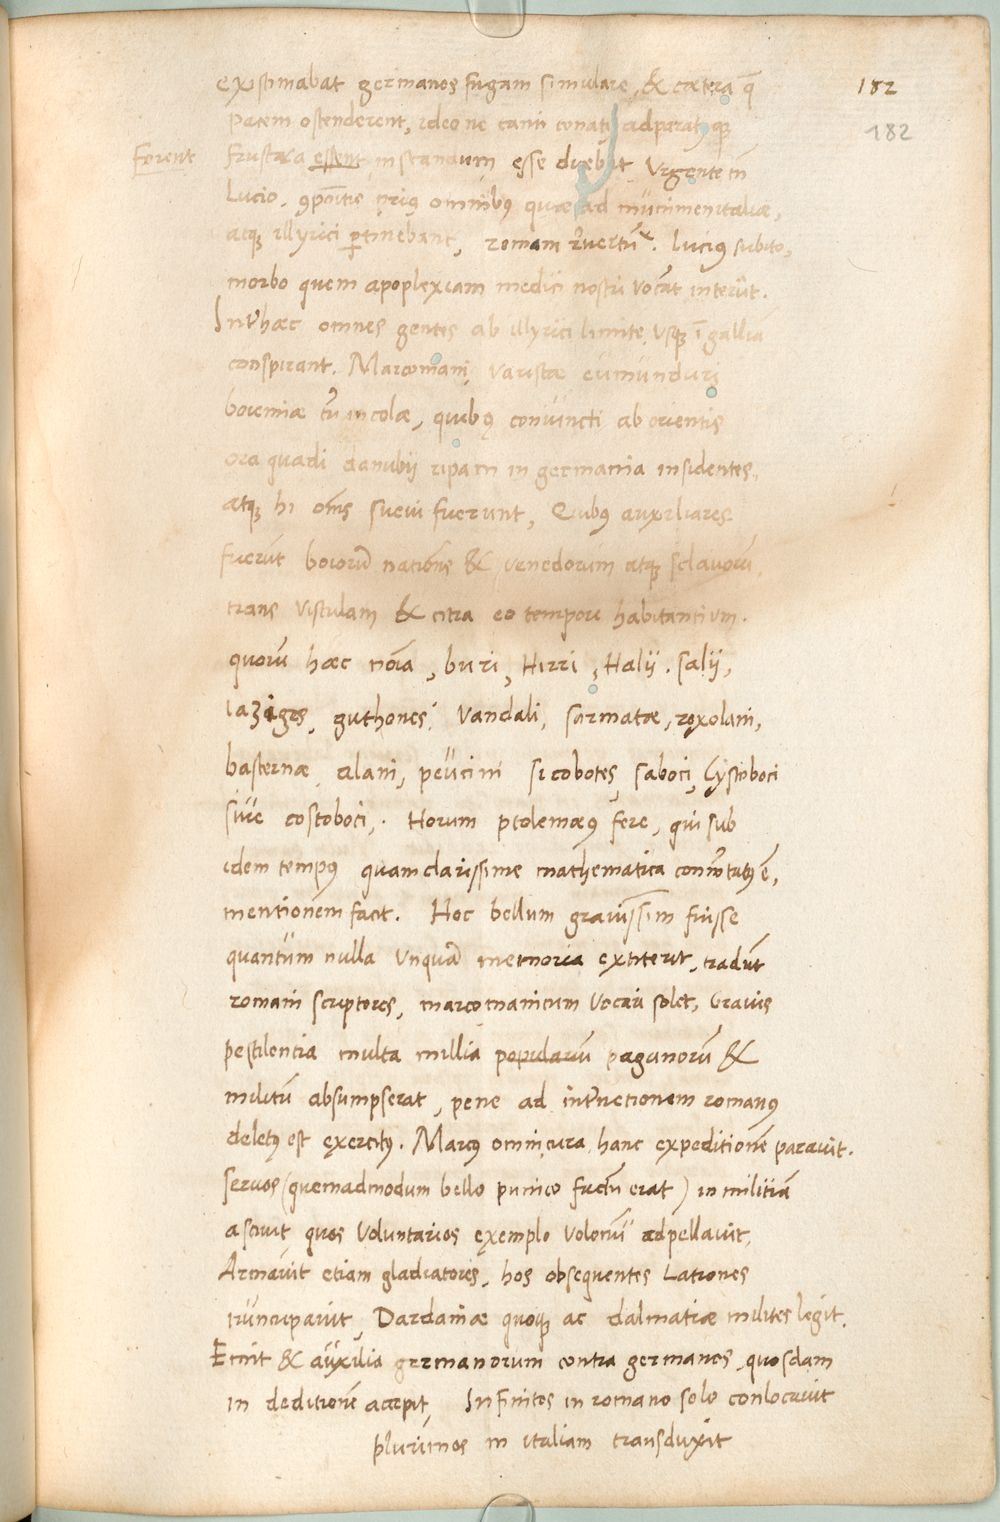 existimabat germanos fugam simulare, & cætera q̃ 182
Pacem ostenderent, ideo ne tanti conatus adparatusqꝫ 182
Forent frustra essent instandum esse ducebat Urgente tñ
Lucio, 9põitis prius omnibꝯ quæ ad munimen italiæ,
atqꝫ illyrici ꝑtinebant, romam rᷣvertũt. Lucius subito,
morbo quem apoplexiam medici nostri vocãt interiit.
Intᷣ hæc omnes gentes ab illyrici limite usqꝫ ĩ galliã
conspirant. Marcomani varistæ eumunduri
boiemiæ tũ incolæ, quibꝯ convincti ab orientis
ora quadi danubij ripam in germania insidentes,
atqꝫ hi oẽs suevi fuerunt, Quibꝯ auxiliares
fuerũt boiorũ nationes & venedorum atqꝫ sclavorũ,
trans vistulam & citra eo tempore habitantium.
quorũ hæc nõĩa, buri, Hirri, Halij. salij,
iaziges, guthones, Vandali, sarmatæ, roxolani,
basternæ alani, peucini sicobotes, saboci, Lystoboci
sive costoboci,. Horum ptolemæꝯ fere, qui sub
idem tempꝯ quam clarissime mathematica ẽ,
mentionem facit. Hoc bellum gravissim fuisse
quantum nulla unquã memoria extiterit, tradũt
romani scriptores, marcomanicum vocari solet, Gravis
pestilentia multa millia popularium paganorũ &
militũ absumpserat, pene ad intᷣnetionem romanꝯ
deletꝯ est exercitꝯ. Marcꝯ omni cura hanc expeditionẽ paravit.
servos (quemadmodum bello punico factũ erat) in militiã
ascivit quos voluntarios exemplo volonũ adpellavit,
Armavit etiam gladiatores, hos obsequentes Latrones
nuncupavit, Dardaniæ quoqꝫ ac dalmatiæ milites legit.
Emit & auxilia germanorum contra germanos, quosdam
in deditionẽ accepit, Infinitos in romano solo conlocavit
plurimos in italiam transduxit